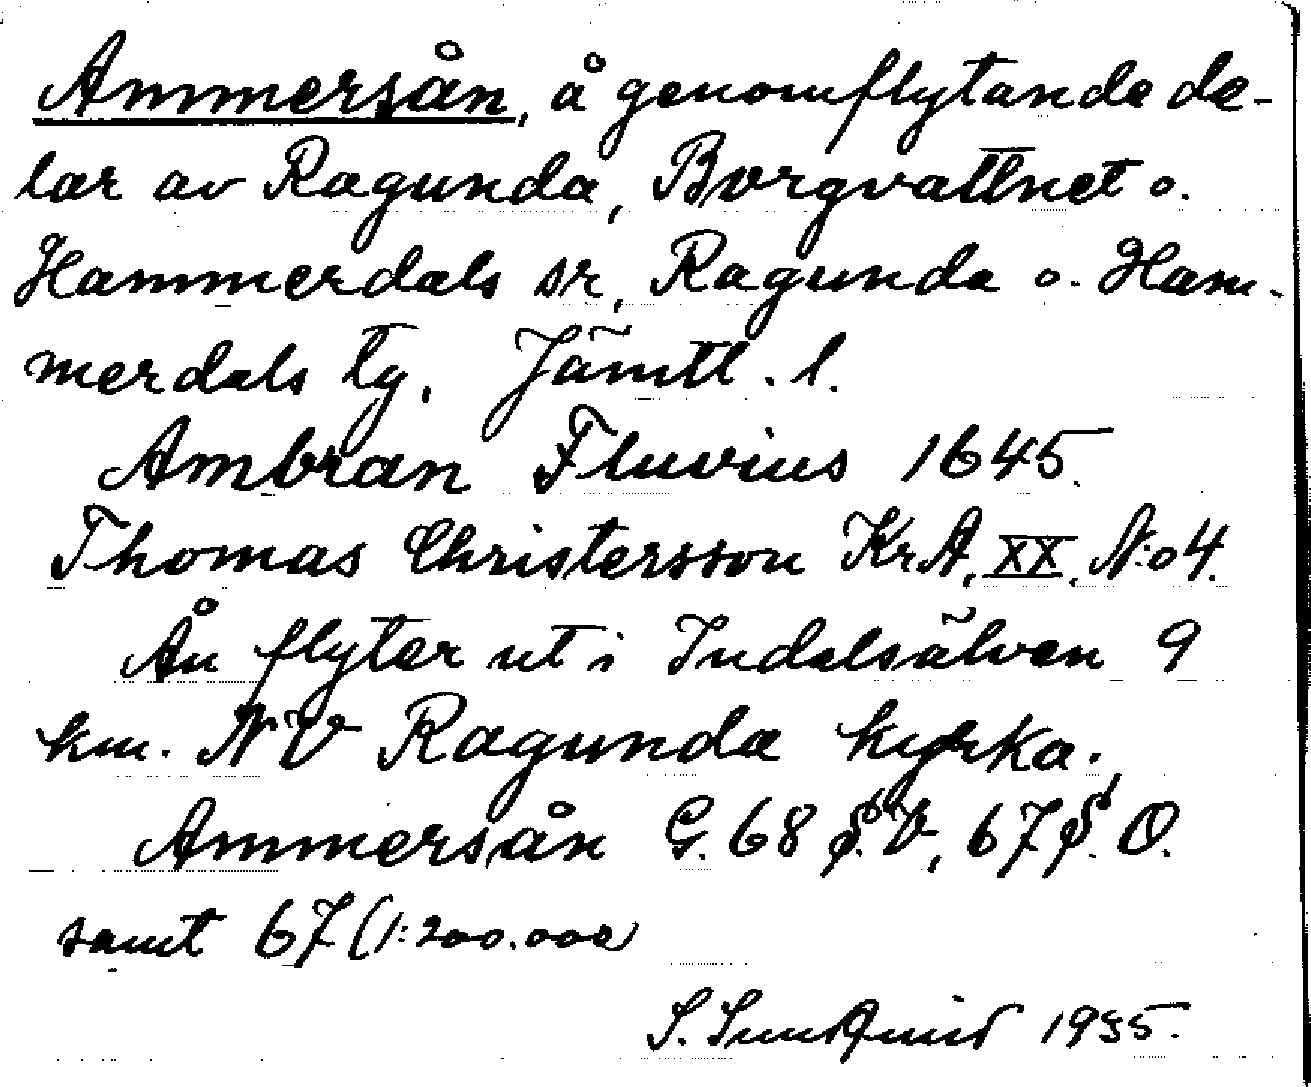 Ammersån, å genomflytande de-
lar av Ragunda, Borgvattnet o.
Hammerdals sr, Ragunda o. Ham-
merdals tg, Jämtl. l.
Ambran Fluvius 1645.
Thomas Christersson KrA, XX, N:o 4.
Ån flyter ut i Indalsälven 9
km. NV Ragunda kyrka.
Ammersån G. 68 S. V, 67 S. O.
samt 67 (1:200.000)
S. Sundquist 1935.